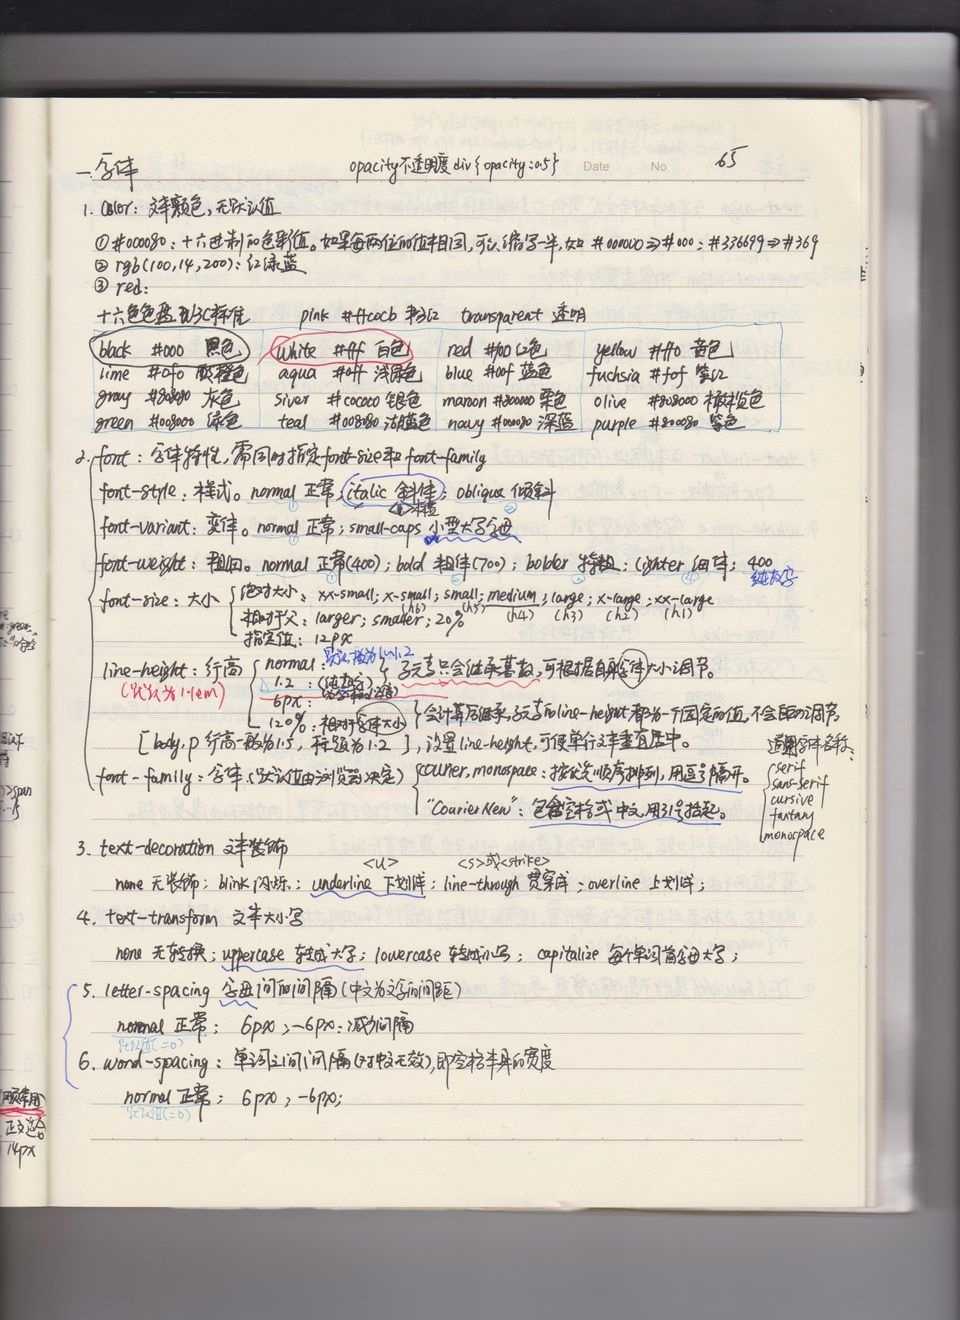 一.字体 opacity不透明度 div{opacity:0.5} Date No. 65
1. Color: 文本颜色,无默认值
①#000080:十六进制的色彩值。如果每两位的值相同,可以缩写一半,如 #000000⇒#000; #336699⇒#369
② rgb(100,14,200):红绿蓝
③ red:
十六色色盘 W3C标准 pink #ffcocb 粉红 transparent 透明
black #000 黑色 white #fff 白色 red #f00 红色 yellow #ff0 黄色
lime #0f0 酸橙色 aqua #0ff 浅绿色 blue #00f 蓝色 fuchsia #f0f 紫红
gray #808080 灰色 siver #cococo 银色 maroon #800000 栗色 olive #808000 橄榄色
green #008000 绿色 teal #008080 湖蓝色 navy #000080 深蓝 purple #800080 紫色
2. font:字体特性,需同时指定font-size和font-family
font-style:样式。normal 正常;italic 斜体;oblique 倾斜
① ②
font-variant:变体。normal 正常;small-caps 小型大写字母
①
font-weight:粗细。normal 正常(400);bold 粗体(700);bolder 特粗;lighter 细体;400
① ④ 纯数字
font-size:大小 绝对大小:xx-small; x-small; small; medium; large; x-large; xx-large
(h6) (h5) (h4) (h3) (h2) (h1)
相对于父:larger; smaller; 20%
指定值:12px
line-height:行高 normal:默认值为1~1.2
(默认为1~1em) 1.2:(纯数字) 子元素只会继承基数,可根据自身字体大小调节。
6px:
120%:相对字体大小 会计算后继承,子元素的line-height都为一个固定的值,不会自动调节。
[body, p 行高一般为1.5,标题为1.2],设置line-height,可使单行文本垂直居中。
font-family:字体(默认值由浏览器决定) courier, monospace:按优先顺序排列,用逗号隔开。
"Courier New":包含空格或中文,用引号括起。
通用字体名称:
serif
sans-serif
cursive
fantasy
monospace
3. text-decoration 文本装饰
<u> <s>或<strike>
none 无装饰;blink 闪烁;underline 下划线;line-through 贯穿线;overline 上划线;
4. text-transform 文本大小写
none 无转换;uppercase 转成大写;lowercase 转成小写;capitalize 每个单词首字母大写;
5. letter-spacing 字母间的间隔(中文为文字的间距)
normal 正常;6px;-6px:减少间隔
默认值(=0)
6. word-spacing:单词之间间隔(对中文无效),即空格本身的宽度
normal 正常;6px;-6px;
默认值(=0)
14px